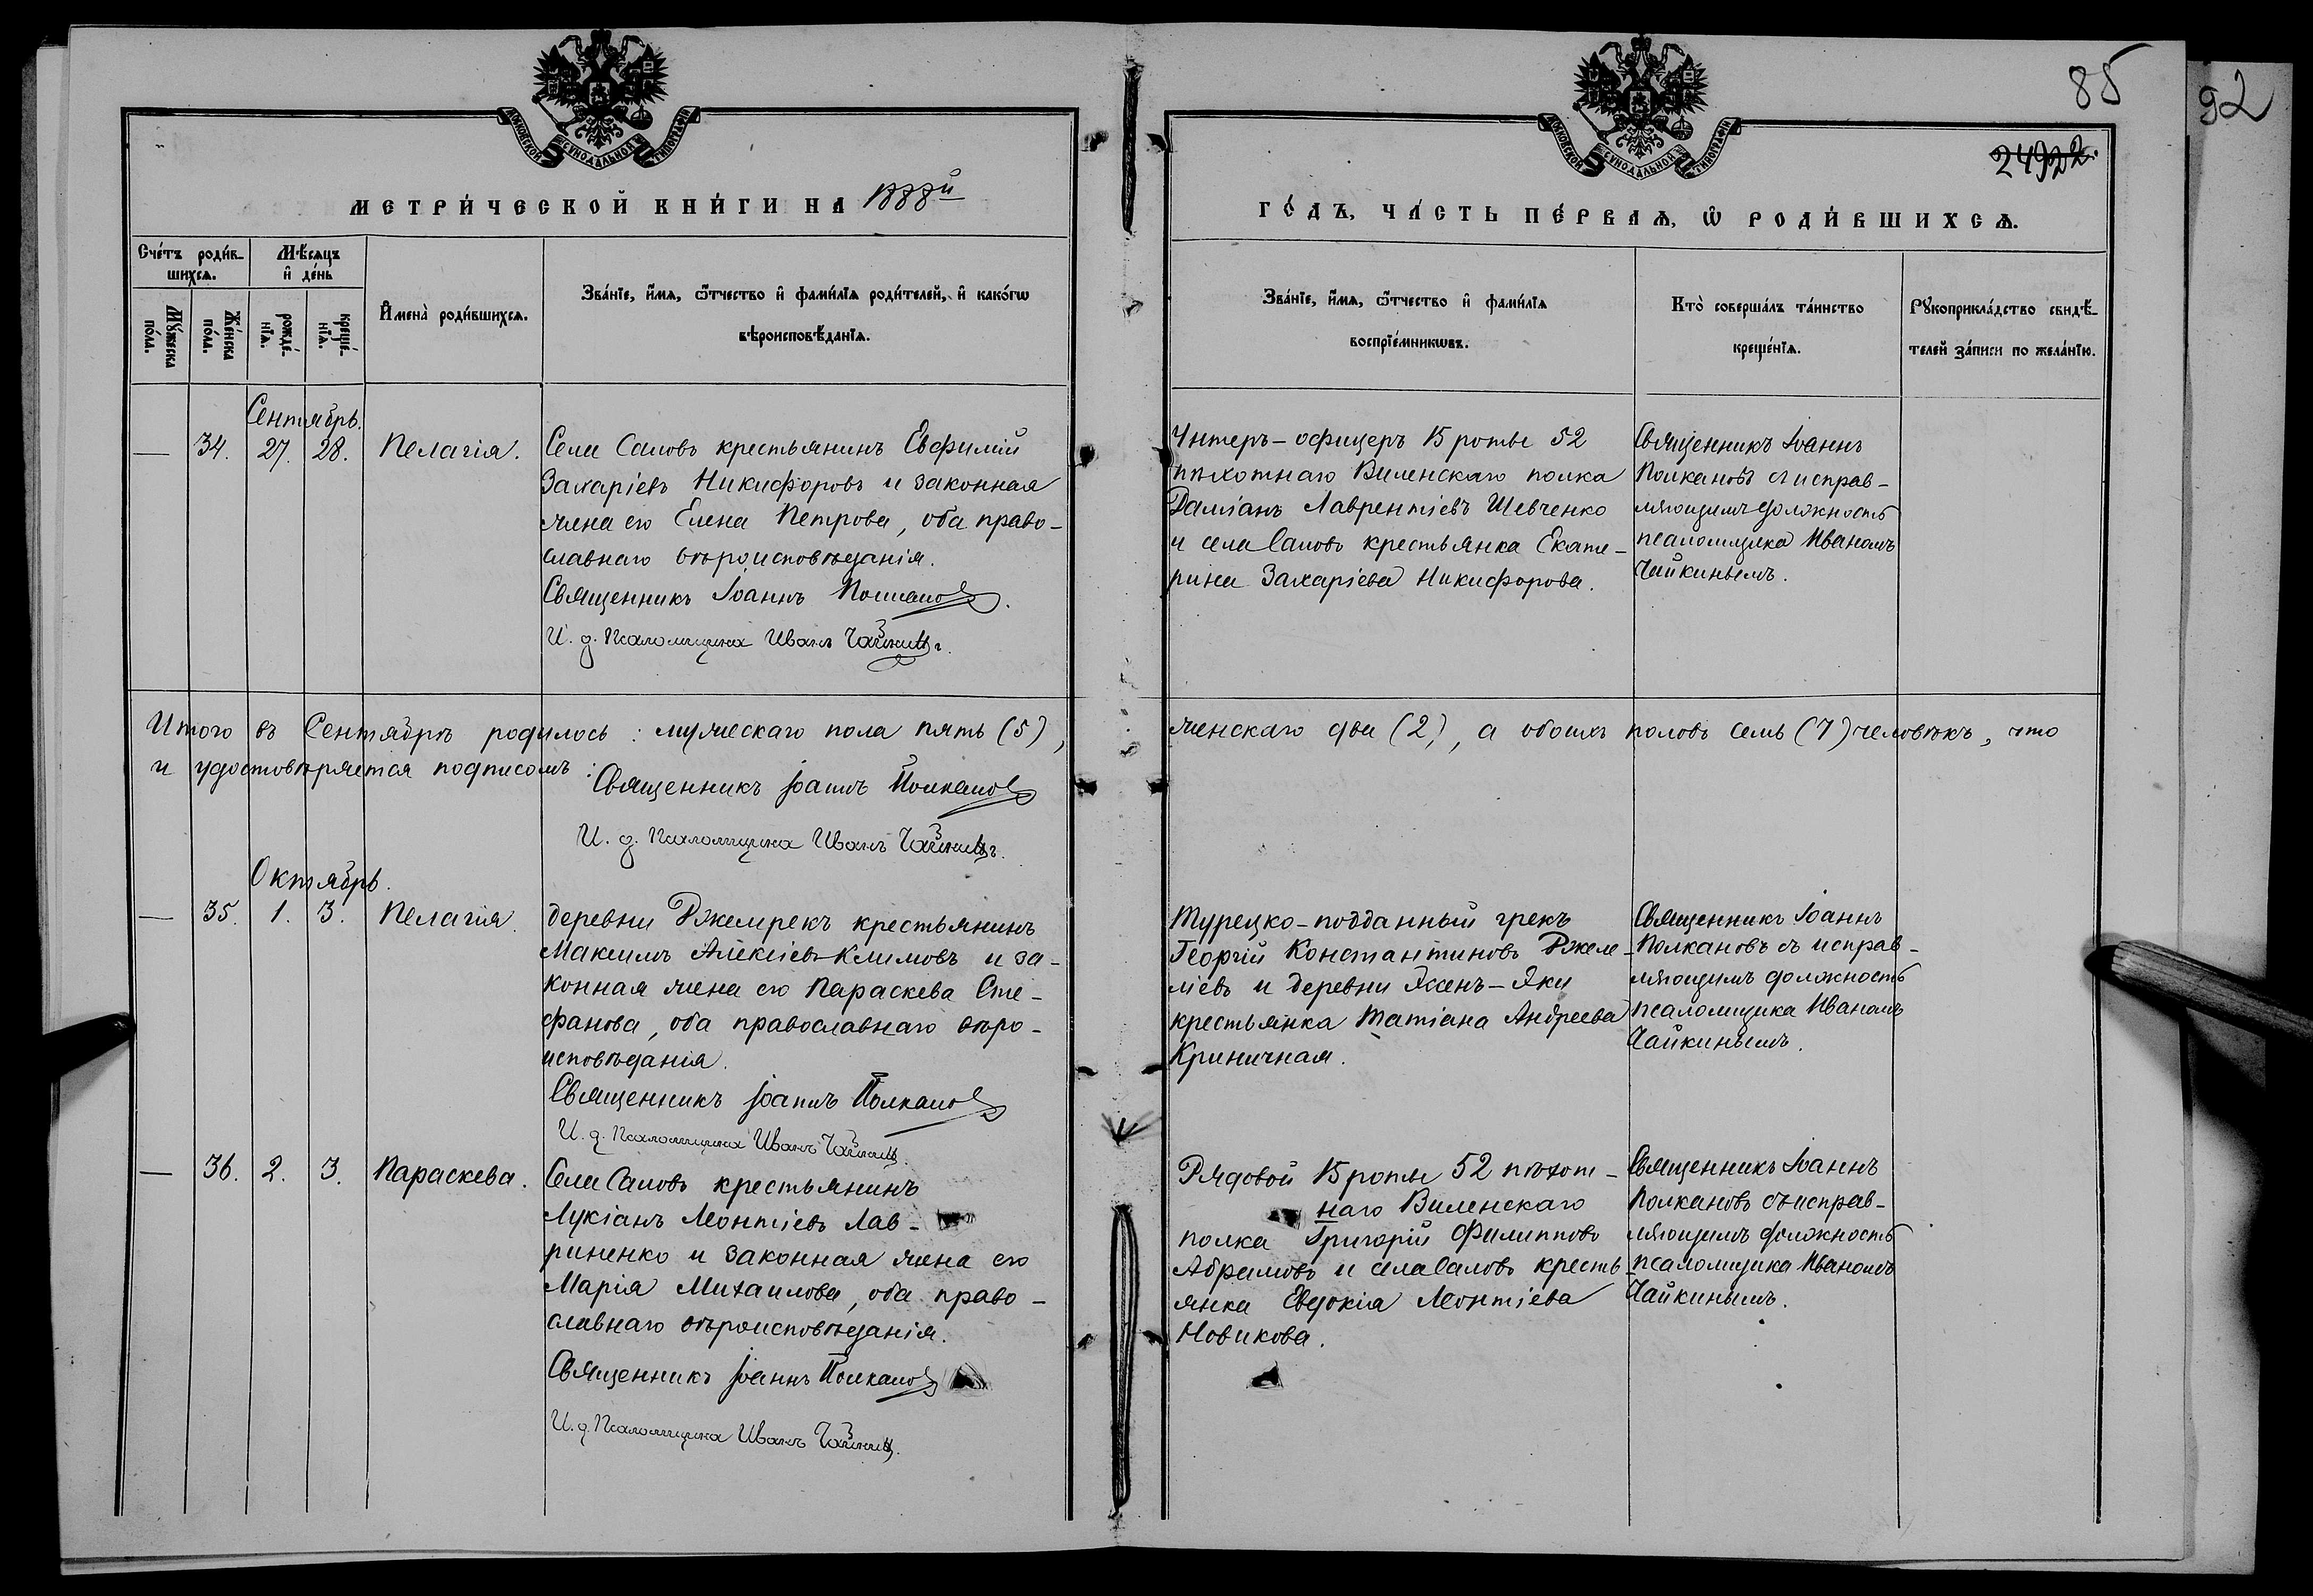 85
92
24922.
МОСКОВСКОЙ СУНОДАЛЬНОЙ ТИПОГРАФІИ
МОСКОВСКОЙ СУНОДАЛЬНОЙ ТИПОГРАФІИ
МЕТРИ́ЧЕСКОЙ КНИ́ГИ НА 1888й
ГО́ДЪ, ЧА́СТЬ ПЕ́РВАѦ, Ѽ РОДИ́ВШИХСѦ.
Сче́тъ роди́в-
шихсѧ.
Мѣ́сѧцъ
и҆ де́нь
Мꙋ́жеска
по́ла.
Же́нска
по́ла.
рожде́-
нїѧ.
креще́-
нїѧ.
И҆мена̀ роди́вшихсѧ.
Зва́нїе, и҆́мѧ, ѻ҆́тчество и҆ фами́лїѧ роди́телей, и҆ како́гѡ
вѣроисповѣ́данїѧ.
Зва́нїе, и҆́мѧ, ѻ҆́тчество и҆ фами́лїѧ
воспрїе́мникѡвъ.
Кто̀ соверша́лъ та́инство
креще́нїѧ.
Рꙋкоприкла́дство свидѣ́-
телей за́писи по жела́нїю.
Сентябрь.
— 34. 27. 28. Пелагія.
Села Саловъ крестьянинъ Евфимій
Захаріевъ Никифоровъ и законная
жена его Елена Петрова, оба право-
славнаго вѣроисповѣданія.
Священникъ Іоаннъ Полкановъ.
И. д. Псаломщика Иванъ Чайкинъ.
Унтеръ-офицеръ 15 роты 52
пѣхотнаго Виленскаго полка
Даміанъ Лаврентіевъ Шевченко
и села Саловъ крестьянка Екате-
рина Захаріева Никифорова.
Священникъ Іоаннъ
Полкановъ съ исправ-
ляющимъ должность
псаломщика Иваномъ
Чайкинымъ.
Итого въ Сентябрѣ родилось: мужескаго пола пять (5), женскаго два (2), а обоихъ половъ семь (7) человѣкъ, что
и удостовѣряется подписомъ:
Священникъ Іоаннъ Полкановъ
И. д. Псаломщика Иванъ Чайкинъ.
Октябрь.
— 35. 1. 3. Пелагія.
деревни Джемрекъ крестьянинъ
Максимъ Алексіевъ Климовъ и за-
конная жена его Параскева Сте-
фанова, оба православнаго вѣро-
исповѣданія.
Священникъ Іоаннъ Полкановъ
И. д. Псаломщика Иванъ Чайкинъ.
Турецко-подданный грекъ
Георгій Константиновъ Джеле-
ліевъ и деревни Яхенъ-Яки
крестьянка Татіана Андреева
Криничная.
Священникъ Іоаннъ
Полкановъ съ исправ-
ляющимъ должность
псаломщика Иваномъ
Чайкинымъ.
— 36. 2. 3. Параскева.
Села Саловъ крестьянинъ
Лукіанъ Леонтіевъ Лав-
риненко и законная жена его
Марія Михаилова, оба право-
славнаго вѣроисповѣданія.
Священникъ Іоаннъ Полкановъ
И. д. Псаломщика Иванъ Чайкинъ.
Рядовой 15 роты 52 пѣхот-
наго Виленскаго
полка Григорій Филипповъ
Абрамовъ и села Саловъ кресть-
янка Евдокія Леонтіева
Новикова.
Священникъ Іоаннъ
Полкановъ съ исправ-
ляющимъ должность
псаломщика Иваномъ
Чайкинымъ.